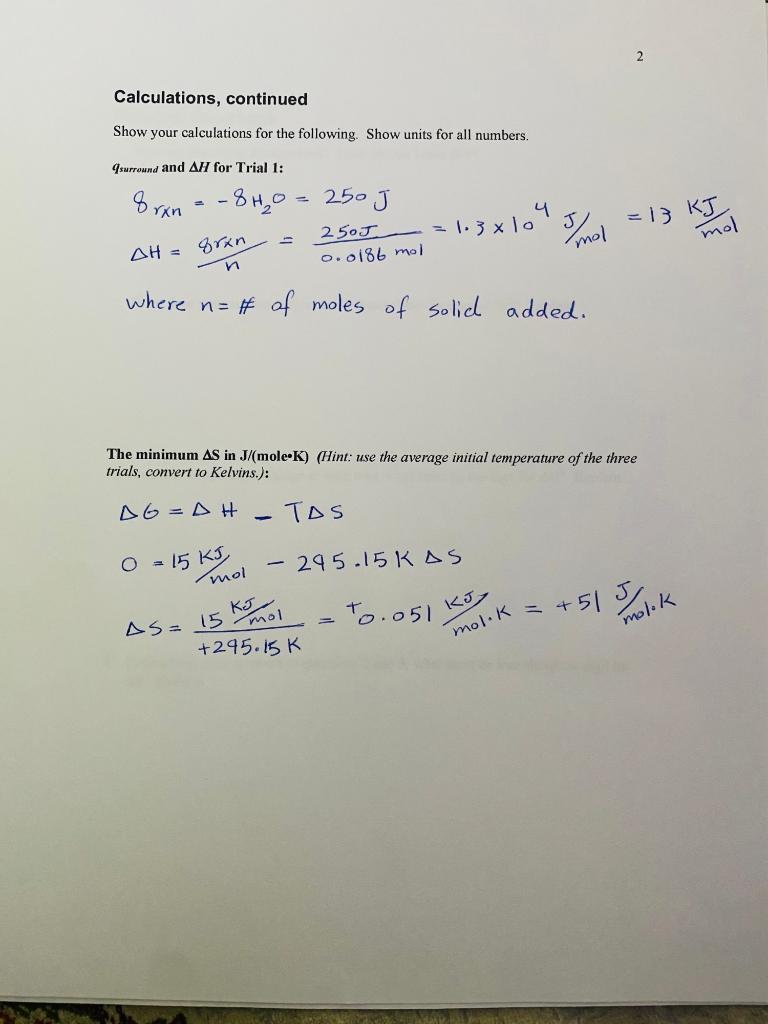 2
Calculations, continued
Show your calculations for the following. Show units for all numbers.
qsurround and ΔH for Trial 1:
q rxn = - q H₂O = 250 J
ΔH = q rxn / n = 250J / 0.0186 mol = 1.3 x 10⁴ J/mol = 13 KJ/mol
where n = # of moles of solid added.
The minimum ΔS in J/(mole•K) (Hint: use the average initial temperature of the three
trials, convert to Kelvins.):
ΔG = ΔH - TΔS
0 = 15 KJ/mol - 295.15 K ΔS
ΔS = 15 KJ/mol / +295.15 K = +0.051 KJ/mol.K = +51 J/mol.K